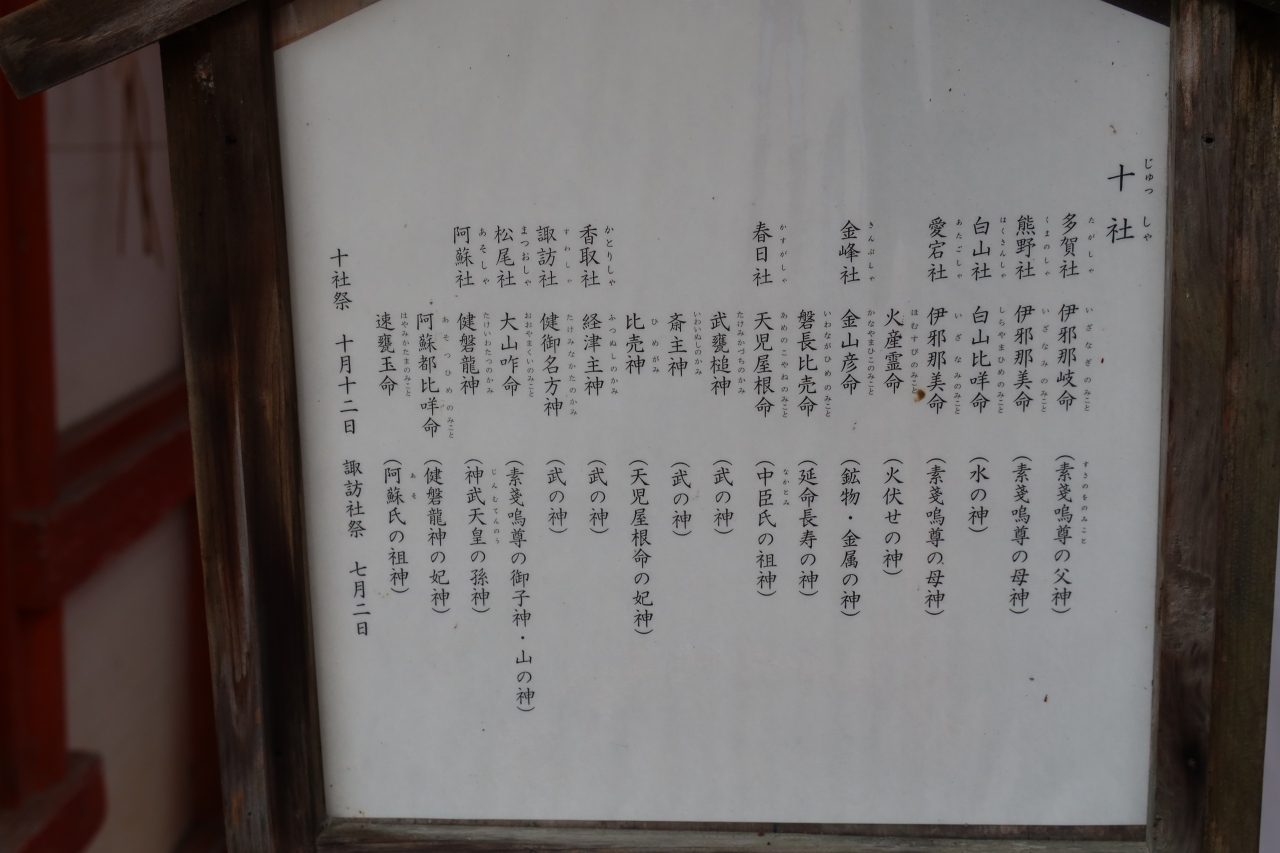 十社
多賀社 伊邪那岐命 (素戔嗚尊の父神)
熊野社 伊邪那美命 (素戔嗚尊の母神)
白山社 白山比咩命 (水の神)
愛宕社 伊邪那美命 (素戔嗚尊の母神)
火産霊命 (火伏せの神)
金峰社 金山彦命 (鉱物・金属の神)
磐長比売命 (延命長寿の神)
春日社 天児屋根命 (中臣氏の祖神)
武甕槌神 (武の神)
斎主神 (武の神)
比売神 (天児屋根命の妃神)
香取社 経津主神 (武の神)
諏訪社 健御名方神 (武の神)
松尾社 大山咋命 (素戔嗚尊の御子神・山の神)
阿蘇社 健磐龍神 (神武天皇の孫神)
阿蘇都比咩命 (健磐龍神の妃神)
速甕玉命 (阿蘇氏の祖神)
十社祭 十月十二日 諏訪社祭 七月二日